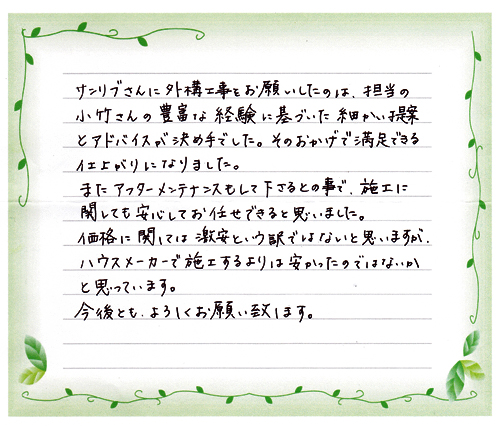 サンリブさんに外構工事をお願いしたのは、担当の
小竹さんの豊富な経験に基づいた細かい提案
とアドバイスが決め手でした。そのおかげで満足できる
仕上がりになりました。
またアフターメンテナンスもして下さるとの事で、施工に
関しても安心してお任せできると思いました。
価格に関しては激安という訳ではないと思いますが、
ハウスメーカーで施工するよりは安かったのではないか
と思っています。
今後とも、よろしくお願い致します。